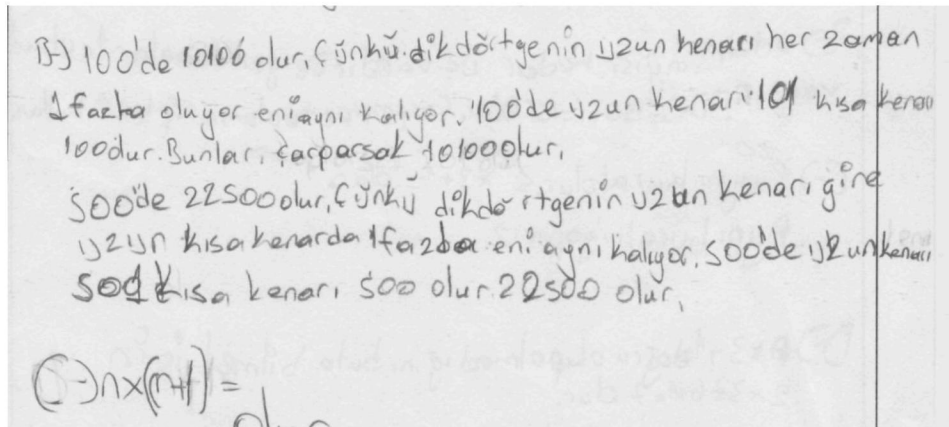 B-) 100'de 10100 olur, Çünkü dikdörtgenin uzun kenarı her zaman
1 fazla oluyor eni aynı kalıyor. 100'de uzun kenarı 101 kısa kenarı
100dur. Bunları çarparsak 10100olur.
500'de 22500 olur, Çünkü dikdörtgenin uzun kenarı gine
uzun kısa kenarda 1 fazla eni aynı kalıyor. 500'de uzun kenarı
501 kısa kenarı 500 olur. 22500 olur.
C-) n×(n+1)=